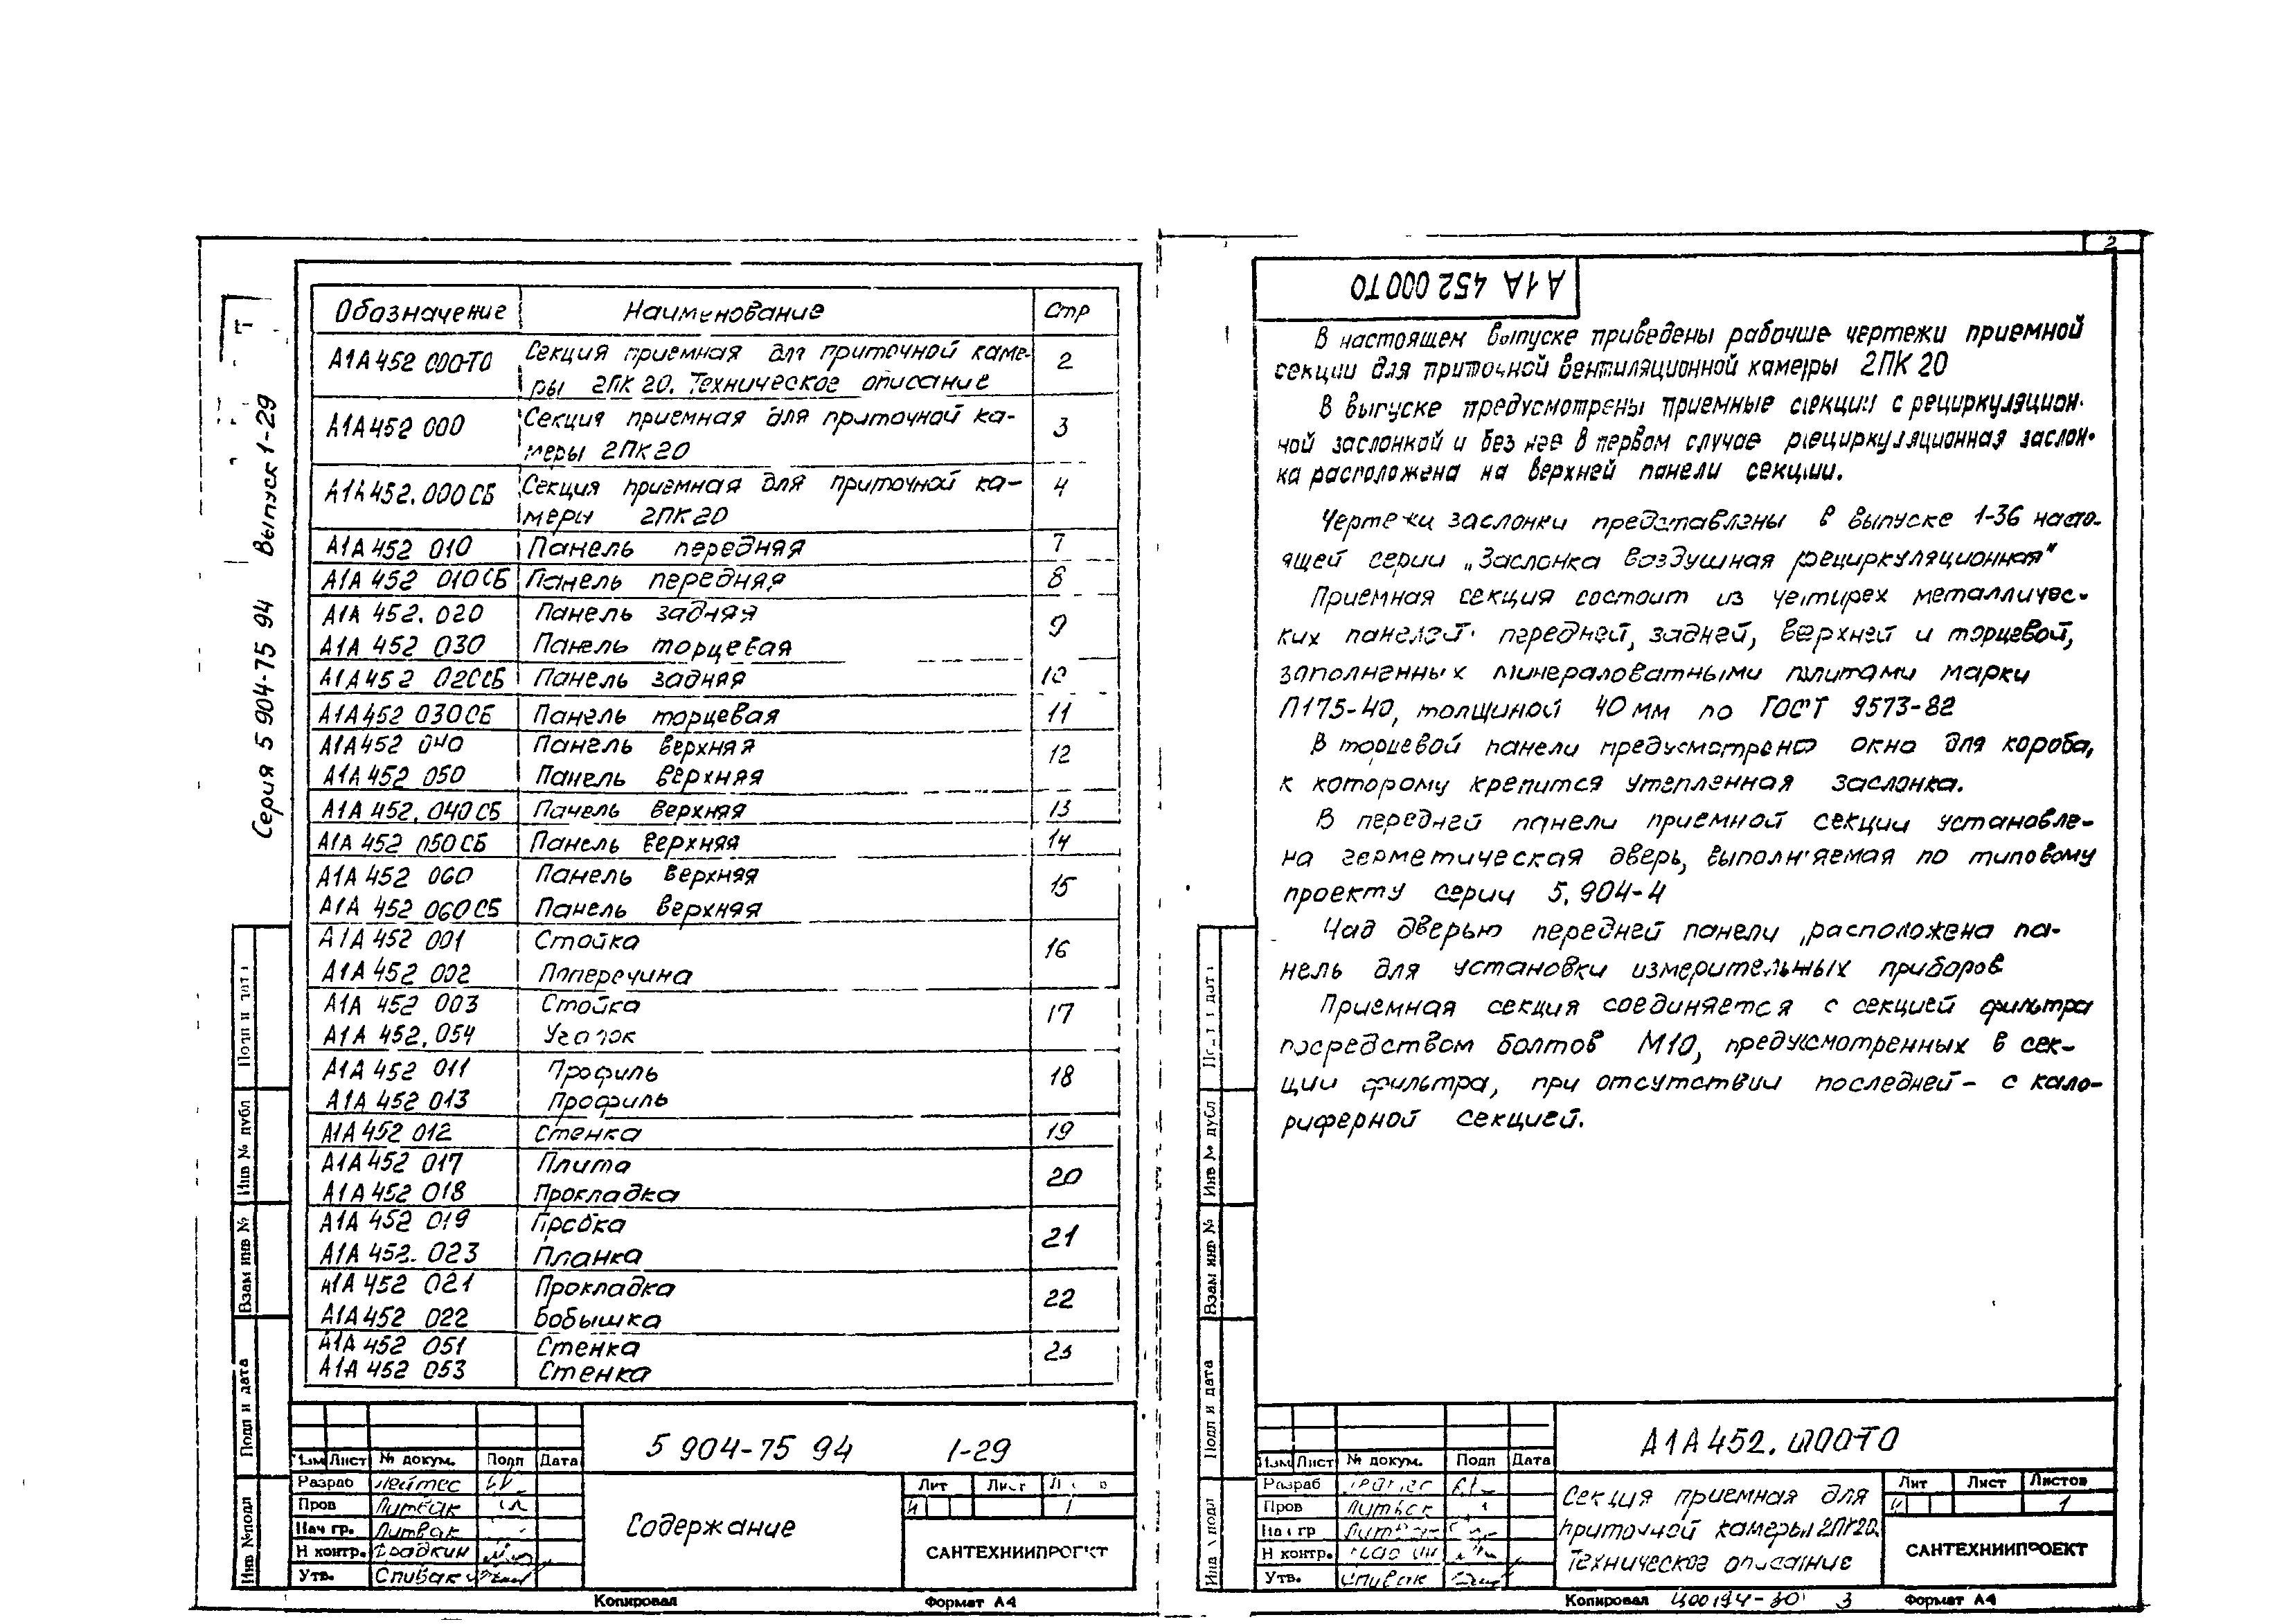 Серия 5 904-75 94 Выпуск 1-29
Обозначение Наименование Стр
А1А452 000-ТО Секция приемная для приточной каме-
ры 2ПК 20. Техническое описание 2
А1А452 000 Секция приемная для приточной ка-
меры 2ПК20 3
А1А452.000СБ Секция приемная для приточной ка-
меры 2ПК20 4
А1А452 010 Панель передняя 7
А1А452 010СБ Панель передняя 8
А1А 452. 020 Панель задняя
А1А 452 030 Панель торцевая 9
А1А452 020СБ Панель задняя 10
А1А452 030СБ Панель торцевая 11
А1А452 040 Панель верхняя
А1А452 050 Панель верхняя 12
А1А 452. 040СБ Панель верхняя 13
А1А 452 050СБ Панель верхняя 14
А1А 452 060 Панель верхняя
А1А 452 060СБ Панель верхняя 15
А1А 452 001 Стойка
А1А 452 002 Поперечина 16
А1А 452 003 Стойка
А1А 452. 054 Уголок 17
А1А 452 011 Профиль
А1А 452 013 Профиль 18
А1А 452 012 Стенка 19
А1А 452 017 Плита
А1А 452 018 Прокладка 20
А1А 452 019 Пробка
А1А 452. 023 Планка 21
А1А 452 021 Прокладка
А1А 452 022 Бобышка 22
А1А 452 051 Стенка
А1А 452 053 Стенка 23
Подп и дата
Инв № дубл
Взам инв №
Подп и дата
Инв №подл
Изм Лист № докум. Подп Дата
Разраб Лейтес
Пров Литвак
Нач гр. Литвак
Н контр.
Утв. Спивак
5 904-75 94 1-29
Содержание
Лит Лист
И 1
САНТЕХНИИПРОЕКТ
Копировал Формат А4
2
А1А 452 000ТО
В настоящем выпуске приведены рабочие чертежи приемной
секции для приточной вентиляционной камеры 2ПК 20
В выпуске предусмотрены приемные секции с рециркуляцион-
ной заслонкой и без нее в первом случае рециркуляционная заслон-
ка расположена на верхней панели секции.
Чертежи заслонки представлены в выпуске 1-36 насто-
ящей серии „Заслонка воздушная рециркуляционная"
Приемная секция состоит из четырех металличес-
ких панелей· передней, задней, верхней и торцевой,
заполненных минераловатными плитами марки
П175-40, толщиной 40 мм по ГОСТ 9573-82
В торцевой панели предусмотрено окно для короба,
к которому крепится утепленная заслонка.
В передней панели приемной секции установле-
на герметическая дверь, выполняемая по типовому
проекту серии 5.904-4
Над дверью передней панели расположена па-
нель для установки измерительных приборов
Приемная секция соединяется с секцией фильтра
посредством болтов М10, предусмотренных в сек-
ции фильтра, при отсутствии последней - с кало-
риферной секцией.
Инв № дубл
Взам инв №
Подп и дата
Инв № подл
Изм Лист № докум. Подп Дата
Разраб
Пров Литвак
Нач гр
Н контр.
Утв. Спивак
А1А452.000ТО
Секция приемная для
приточной камеры 2ПК20.
Техническое описание
Лит Лист Листов
И 1
САНТЕХНИИПРОЕКТ
Копировал 3 Формат А4